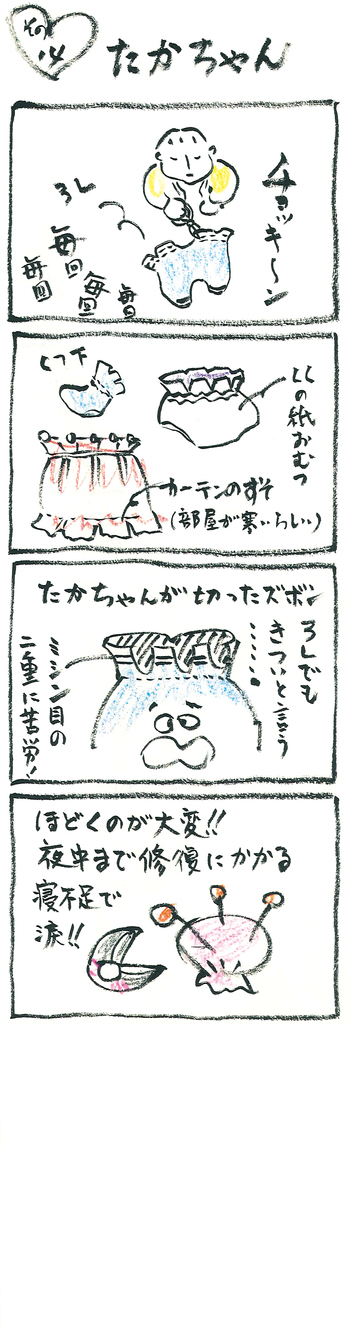 その14
たかちゃん
チョッキ〜ン
3L
毎回
毎回
毎回
毎回
LLの紙おむつ
ヒフ下
カーテンのすそ
(部屋が寒いらしい)
たかちゃんが切ったズボン
3Lでも
きついと言う
……
ミシン目の
二重に苦労!
ほどくのが大変!!
夜中まで修復にかかる
寝不足で
涙!!